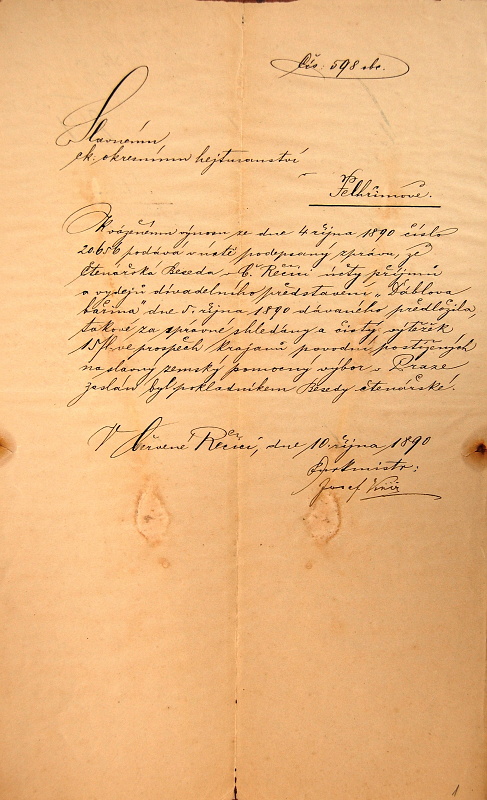 Čís: 598 obc.
Slavnému
ck. okresnímu hejtmanství
v
Pelhřimově.
K váženému výnosu ze dne 4 října 1890 číslo
20.656 podává v úctě podepsaný zprávu, že
Čtenářská Beseda v Č. Řečici účty příjmů
a vydejů divadelního představení „Ďáblova
bařina" dne 5. října 1890 dávaného předložila,
takové za správné shledány a čistý výtěžek
15 ve prospěch krajanů povodní postižených
na slavný zemský pomocný výbor v Praze
zaslán byl pokladníkem Besedy čtenářské.
V Červené Řečici, dne 10. října 1890
Purkmistr:
Josef
1